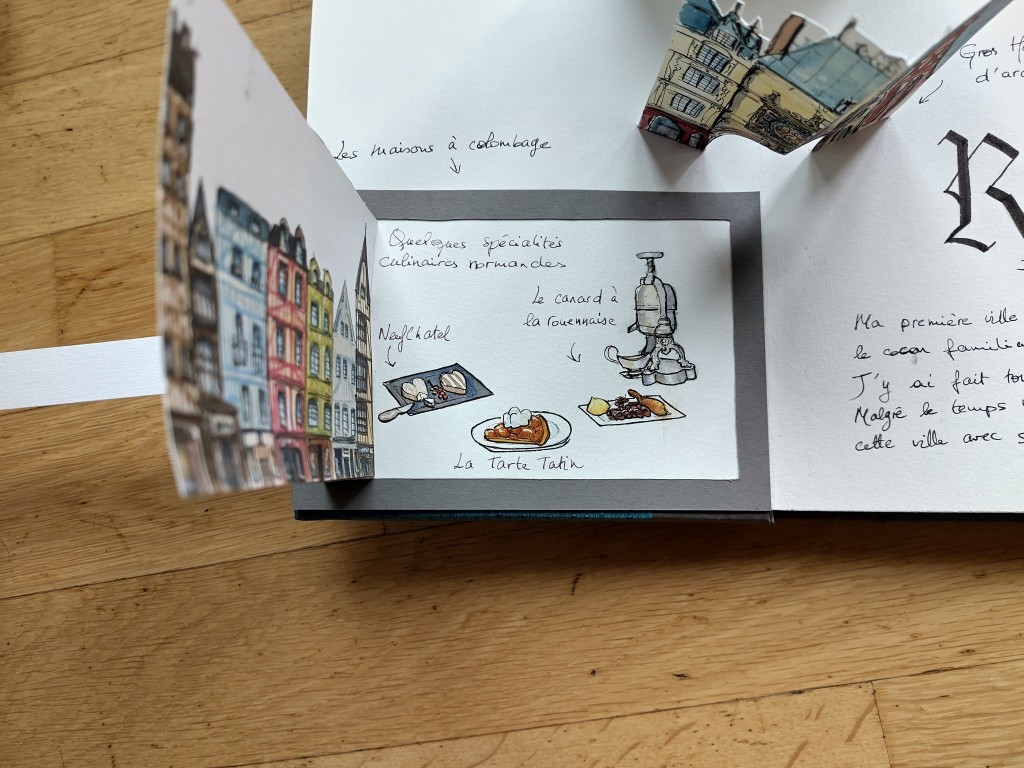 Les maisons à colombage
Quelques spécialités
culinaires normandes
Neufchatel
Le canard à
la rouennaise
La Tarte Tatin
Gros
d'
R
Ma première ville
le cocon
J'y ai fait
Malgré le temps
cette ville avec